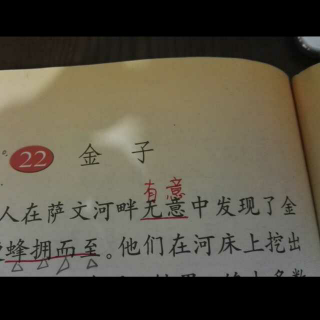 22 金子
有意
人在萨文河畔无意中发现了金
蜂拥而至。他们在河床上挖出